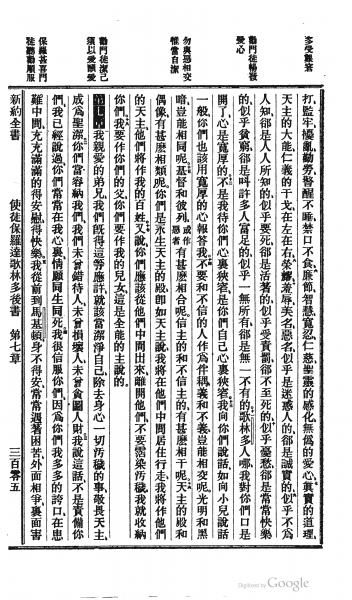 多受艱苦
打、監牢、擾亂、勤勞、儆醒不睡、禁口不食、廉節、智慧、寬忍、仁慈、聖靈的感化、無僞的愛心、眞實的道理、
天主的大能、仁義的干戈、在左在右、榮耀羞辱、美名惡名、似乎是迷惑人的、卻是誠實的、似乎不爲
人知、卻是人人所知的、似乎要死、卻是活著的、似乎受責罰、卻不至死的、似乎憂愁、卻是常常快樂
的、似乎貧窮、卻是叫許多人富足的、似乎一無所有、卻是無一不有的、歌林多人哪、我對你們口是
勸門徒暢發愛心
開了、心是寬厚的、不是我待你們心裏狹窄、是你們自己心裏狹窄、我向你們說話、如向小兒說話
一般、你們也該用寬厚的心報答我、不要和不信的人作爲伴耦、義和不義豈能相交呢、光明和黑
勿與惡和交惟當自潔
暗豈能相同呢、基督和彼列或作惡者有甚麽相合呢、信主的和不信主的、有甚麽相干呢、天主的殿和
偶像有甚麽相類呢、你們是永生天主的殿、卽如天主說、我將在他們中間居住行走、我將作他們
的天主、他們將作我的百姓、又說、你們應該從他們中間出來、離開他們、不要霑染汚穢、我就收納
你們、我要作你們的父、你們要作我的兒女、這是全能的主說的、
勸門徒潔己須以愛顧愛
第七章 我親愛的弟兄、我們旣得這等應許、就該當潔淨自己、除去身心一切汚穢的事、敬畏天主、
成爲聖潔、你們當容納我們、我們未曾錯待人、未曾損壞人、未曾貪圖人財、我說這話、不是責備你
們、我已經說過、你們常常在我心裏、情願同生同死、我很信服你們、因爲你們我多多的誇口、在患
保羅甚喜門徒聽勸順服
難中間、充充滿滿的得安慰、得快樂、我從前到馬基頓、身不得安、常常遇著困苦、外面相爭、裏面害
新約全書 使徒保羅達歌林多後書 第七章 三百零五
Digitized by Google